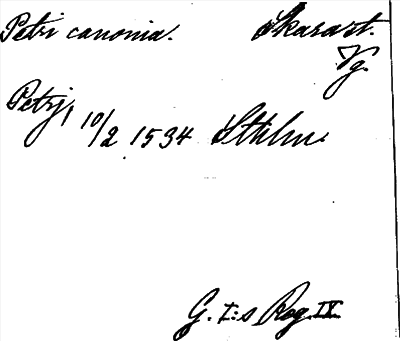 Petri canonia. Skara st.
Vg.
Petrj, 10/2 1534 Sthlm.
G. I:s Reg. IX